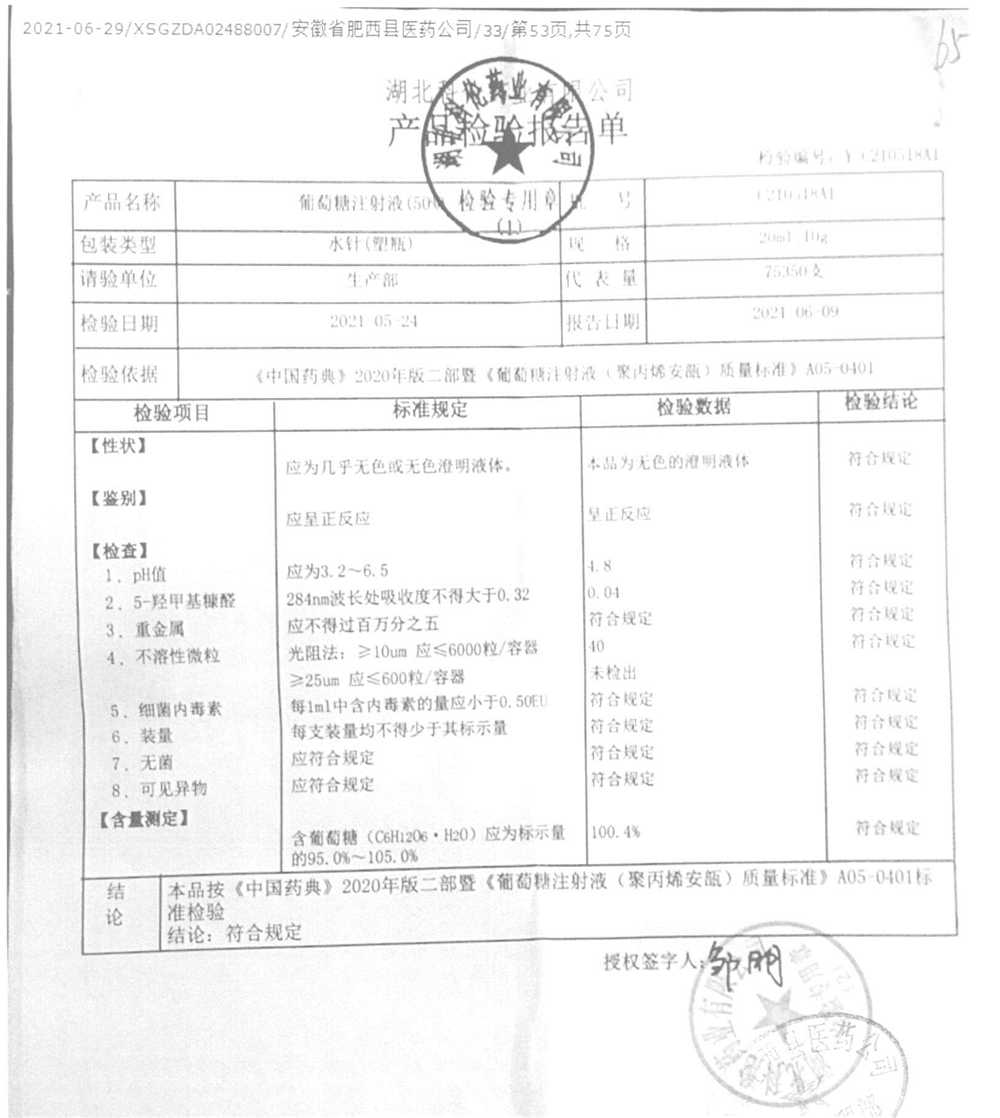 2021-06-29/XSGZDA02488007/安徽省肥西县医药公司/33/第53页,共75页
65
湖北科伦药业有限公司
产品检验报告单
湖北科伦药业有限公司
检验专用章
(1)
检验编号: Y C210518A1
产品名称 葡萄糖注射液(50% 批 号 C210518A1
包装类型 水针(塑瓶) 规 格 20ml:10g
请验单位 生产部 代 表 量 75350支
检验日期 2021-05-24 报告日期 2021-06-09
检验依据 《中国药典》2020年版二部暨《葡萄糖注射液(聚丙烯安瓿)质量标准》A05-0401
检验项目 标准规定 检验数据 检验结论
【性状】
应为几乎无色或无色澄明液体。 本品为无色的澄明液体 符合规定
【鉴别】
应呈正反应 呈正反应 符合规定
【检查】
1、pH值 应为3.2～6.5 4.8 符合规定
2、5-羟甲基糠醛 284nm波长处吸收度不得大于0.32 0.04 符合规定
3、重金属 应不得过百万分之五 符合规定 符合规定
4、不溶性微粒 光阻法: ≥10um 应≤6000粒/容器 40 符合规定
≥25um 应≤600粒/容器 未检出
5、细菌内毒素 每1ml中含内毒素的量应小于0.50EU 符合规定 符合规定
6、装量 每支装量均不得少于其标示量 符合规定 符合规定
7、无菌 应符合规定 符合规定 符合规定
8、可见异物 应符合规定 符合规定 符合规定
【含量测定】
含葡萄糖(C6H12O6·H2O)应为标示量 100.4% 符合规定
的95.0%～105.0%
结论 本品按《中国药典》2020年版二部暨《葡萄糖注射液(聚丙烯安瓿)质量标准》A05-0401标
准检验
结论: 符合规定
授权签字人: 邹明
药业有限
医药公司